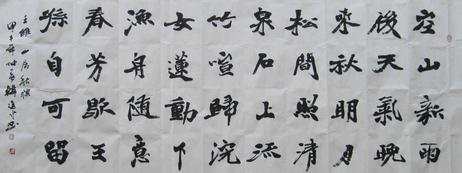 空山新雨
後天氣晚
來秋明月
松間照清
泉石上流
竹喧歸浣
女蓮動下
漁舟隨意
春芳歇王
孫自可留
王維山居秋暝
甲午